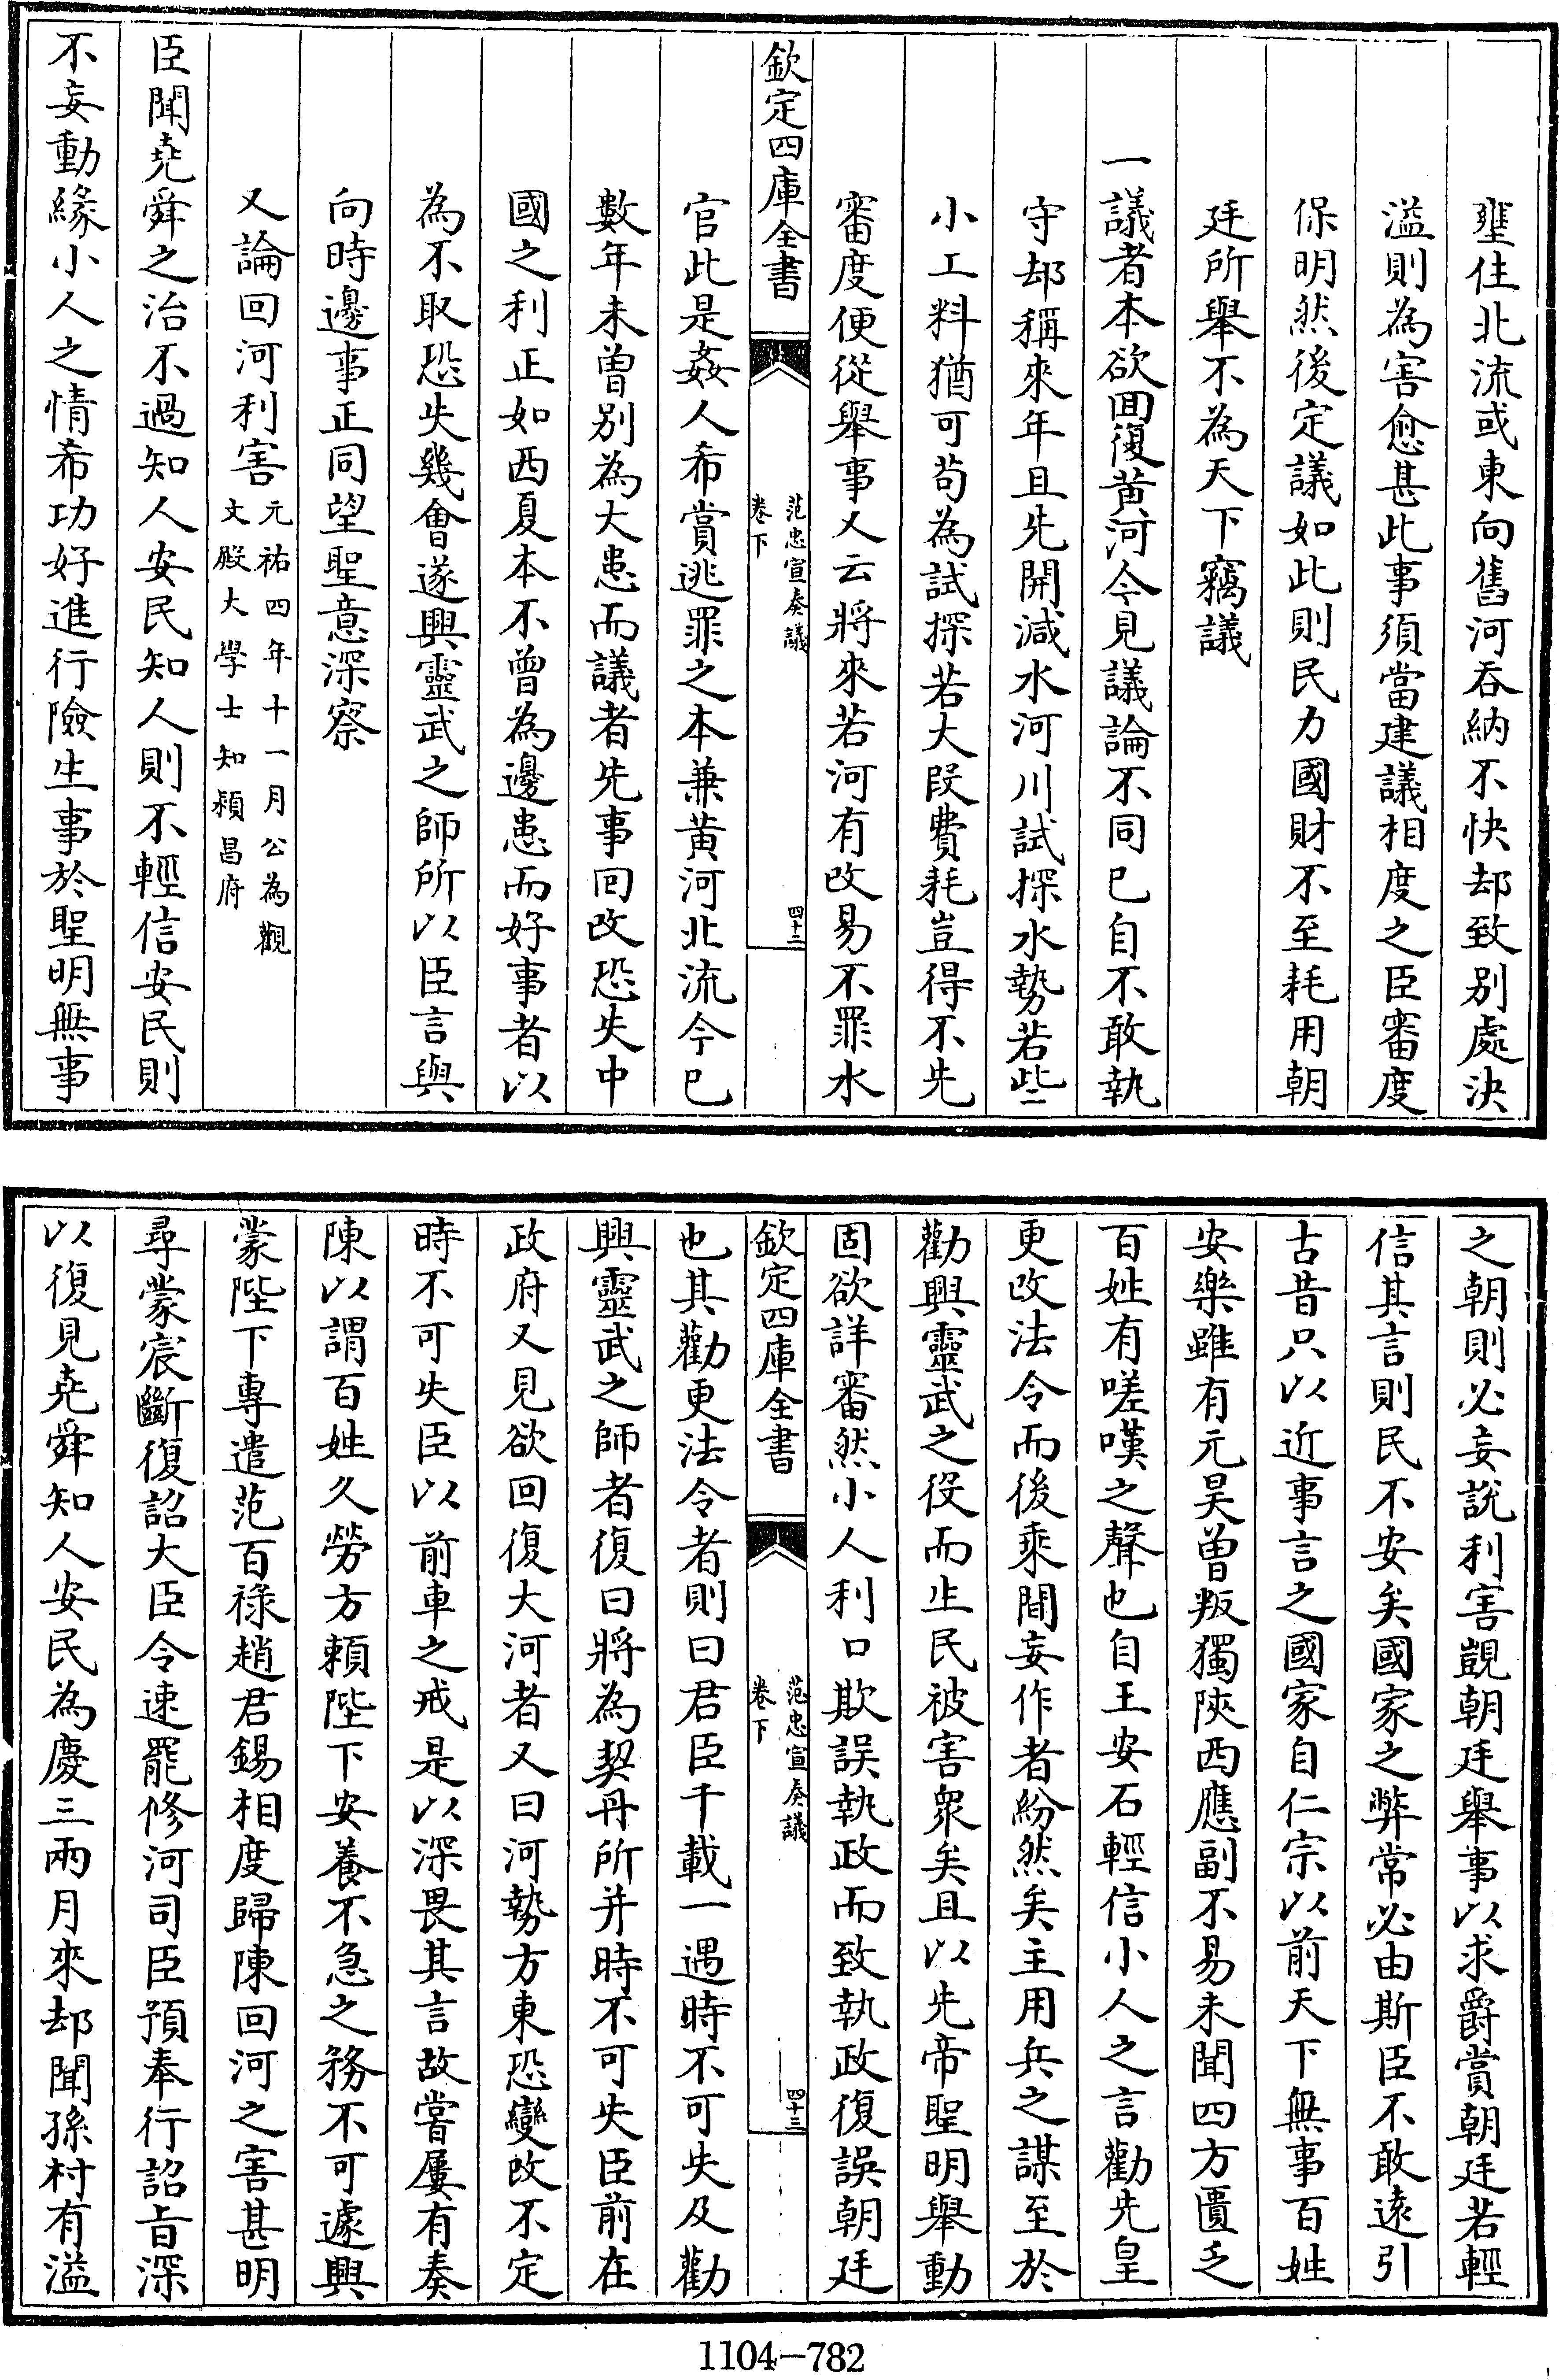 壅住北流或東向舊河吞納不快却致别處決
溢則為害愈甚此事須當建議相度之臣審度
保明然後定議如此則民力國財不至耗用朝
廷所舉不為天下竊議
一議者本欲回復黄河今見議論不同已自不敢執
守却稱來年且先開減水河川試探水勢若些
小工料猶可苟為試探若大段費耗豈得不先
審度便從舉事又云將來若河有改易不罪水
欽定四庫全書
范忠宣奏議
卷下
四十二
官此是姦人希賞逃罪之本兼黄河北流今已
數年未曽别為大患而議者先事回改恐失中
國之利正如西夏本不曾為邊患而好事者以
為不取恐失幾會遂興靈武之師所以臣言與
向時邊事正同望聖意深察
又論回河利害
元祐四年十一月公為觀
文殿大學士知潁昌府
臣聞堯舜之治不過知人安民知人則不輕信安民則
不妄動緣小人之情希功好進行險生事於聖明無事
之朝則必妄説利害覬朝廷舉事以求爵賞朝廷若輕
信其言則民不安矣國家之弊常必由斯臣不敢逺引
古昔只以近事言之國家自仁宗以前天下無事百姓
安樂雖有元昊曽叛獨陜西應副不易未聞四方匱乏
百姓有嗟嘆之聲也自王安石輕信小人之言勸先皇
更改法令而後乘間妄作者紛然矣主用兵之謀至於
勸興靈武之役而生民被害衆矣且以先帝聖明舉動
固欲詳審然小人利口欺誤執政而致執政復誤朝廷
欽定四庫全書
范忠宣奏議
卷下
四十三
也其勸更法令者則曰君臣千載一遇時不可失及勸
興靈武之師者復曰將為契丹所并時不可失臣前在
政府又見欲回復大河者又曰河勢方東恐變改不定
時不可失臣以前車之戒是以深畏其言故嘗屢有奏
陳以謂百姓久勞方賴陛下安養不急之務不可遽興
蒙陛下專遣范百祿趙君錫相度歸陳回河之害甚明
尋蒙宸斷復詔大臣令速罷修河司臣預奉行詔旨深
以復見堯舜知人安民為慶三兩月來却聞孫村有溢
1104-782